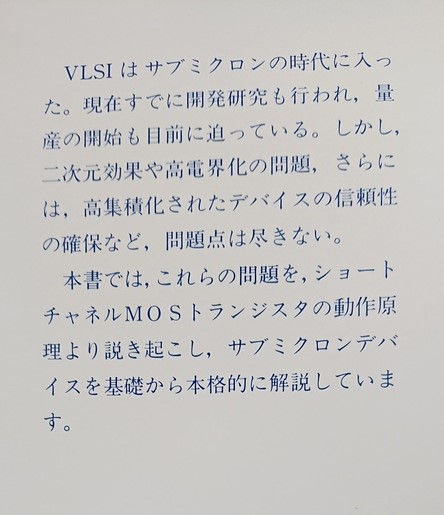 VLSI はサブミクロンの時代に入っ
た。現在すでに開発研究も行われ，量
産の開始も目前に迫っている。しかし，
二次元効果や高電界化の問題，さらに
は，高集積化されたデバイスの信頼性
の確保など，問題点は尽きない。
本書では，これらの問題を，ショート
チャネルMOSトランジスタの動作原
理より説き起こし，サブミクロンデバ
イスを基礎から本格的に解説していま
す。